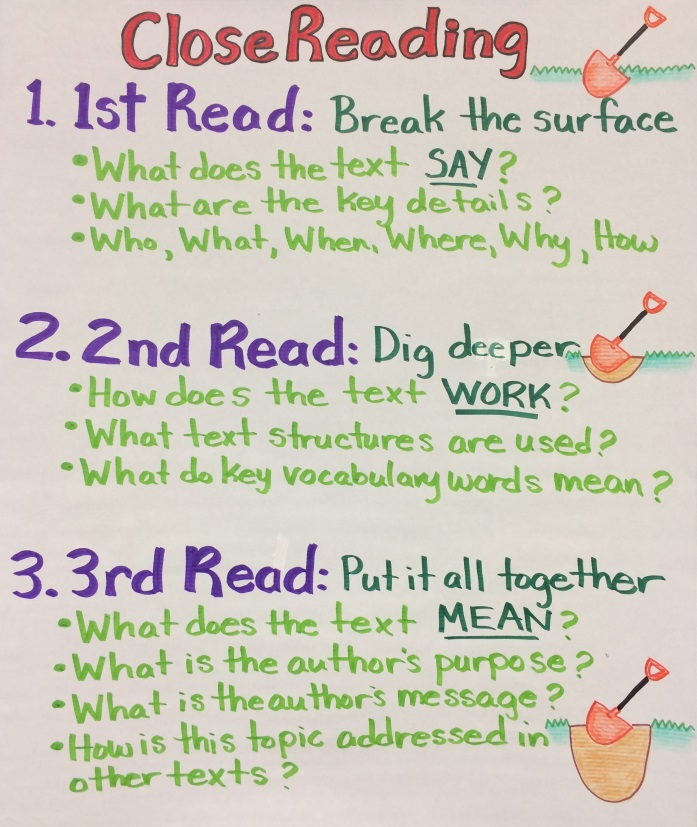 Close Reading
1. 1st Read: Break the surface
•What does the text SAY?
•What are the key details?
•Who, What, When, Where, Why, How
2. 2nd Read: Dig deeper
•How does the text WORK?
•What text structures are used?
•What do key vocabulary words mean?
3. 3rd Read: Put it all together
•What does the text MEAN?
•What is the author's purpose?
•What is the author's message?
•How is this topic addressed in
other texts?